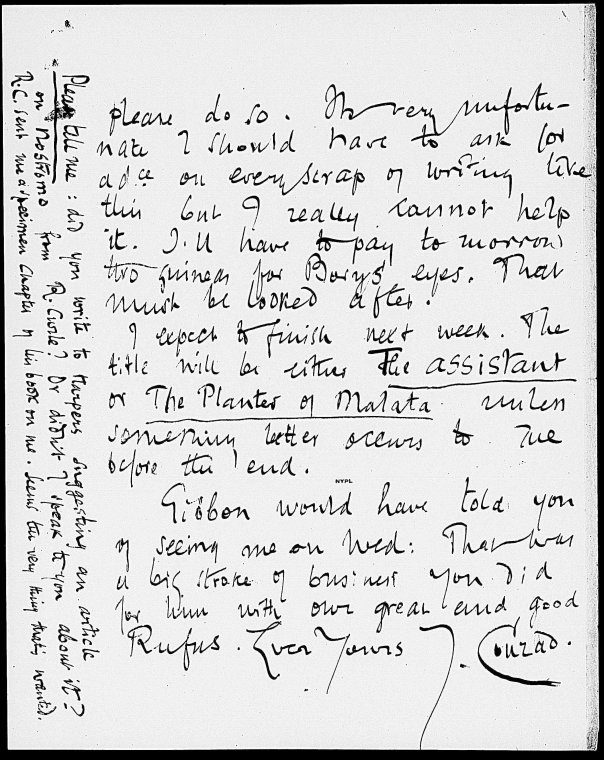 please do so. Its very unfortu-
nate I should have to ask for
adce on every scrap of writing like
this but I really cannot help
it. I'll have to pay to morrow
two guineas for Borys eyes. That
must be looked after.
I expect to finish next week. The
title will be either The Assistant
or The Planter of Malata unless
something better occurs to me
before the end.
NYPL
Gibbon would have told you
of seeing me on Wed: That was
a big stroke of business you did
for him with our great and good
Rufus. Ever Yours J. Conrad.
Please tell me: did you write to Harpers suggesting an article
on Nostromo from R. Curle? Or didn't I speak to you about it?
R.C. sent me a specimen Chapter of his book on me. Seems the very thing that's wanted.